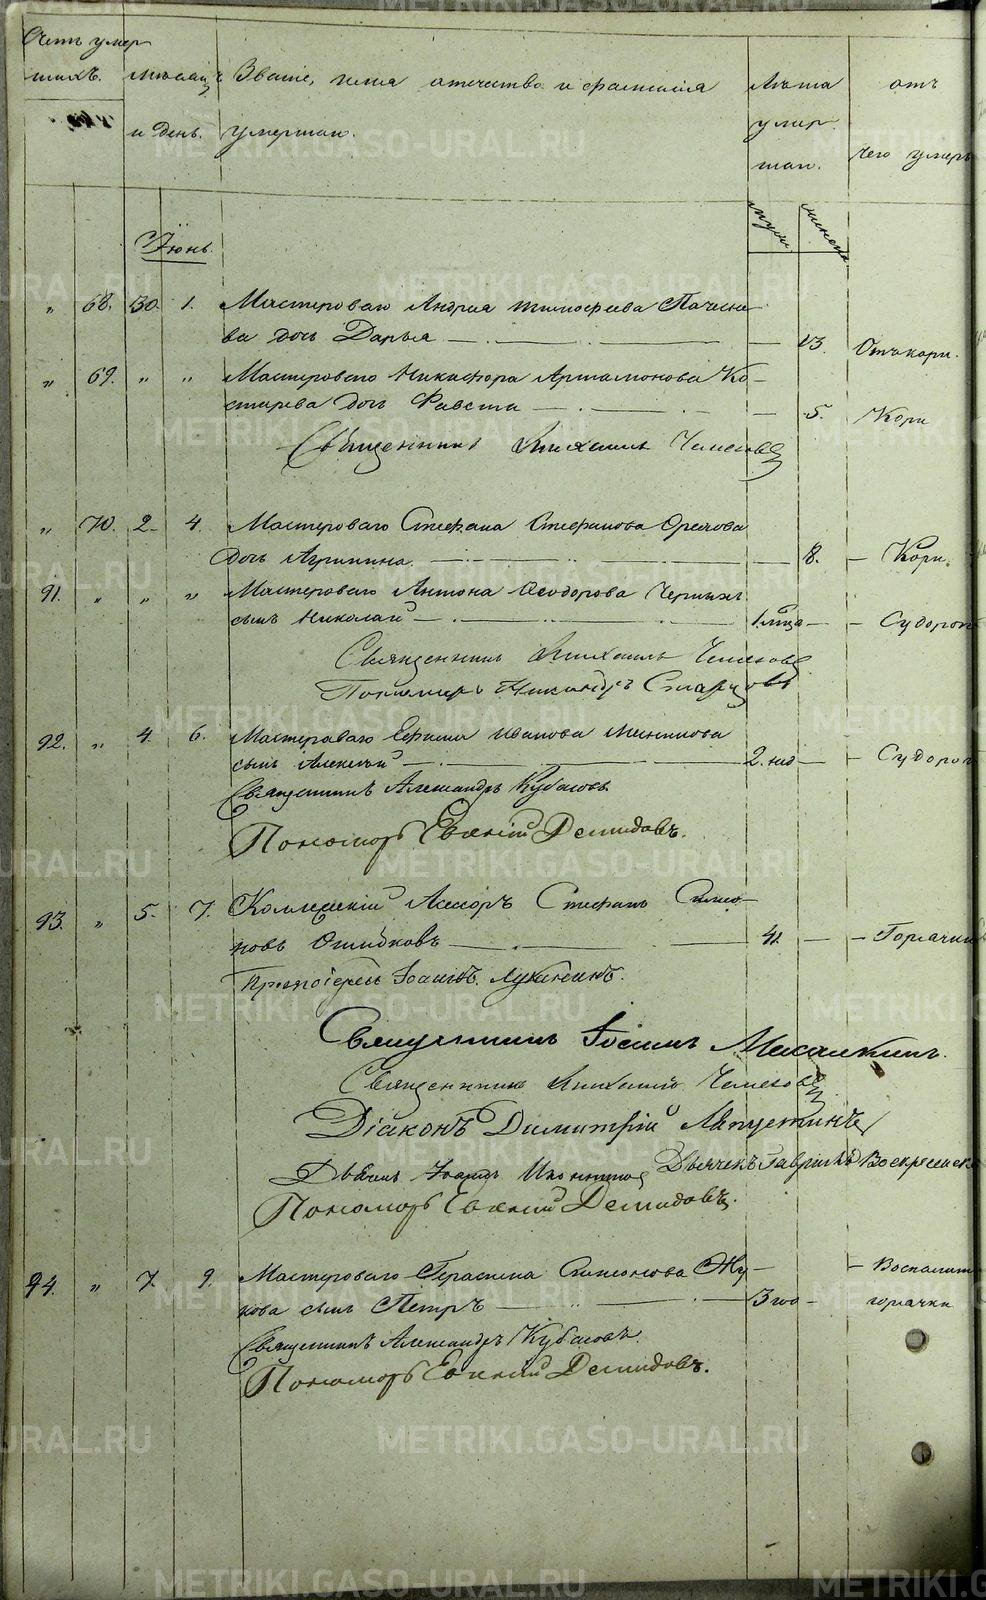 Счетъ умер
шихъ. мѣсяцъ Званіе, имя отечество и фамилія Лѣта отъ
и день. умершаго. умер чего умеръ
шаго.
муж. женска
Іюнь.
„ 68. 30. 1. Мастероваго Андрея Тимофеева
ва дочь Дарья 13. Отъ кори.
„ 69. „ „ Мастероваго Никифора Артамонова Ко-
старева дочь Фавста 5. Кори
Священникъ Михаилъ Чемесовъ
„ 70. 2. 4. Мастероваго Стефана Стефанова
дочь Агрипина. 8. Кори.
91. „ „ „ Мастероваго Антона Феодорова Черныхъ
сынъ Николай 1. мѣсяца Судорог
Священникъ Михаилъ Чемесовъ
Пономарь Никандръ Старцовъ
92. „ 4. 6. Мастероваго Ефима Иванова
сынъ Алексѣй 2. нед Судорог
Священникъ Александръ Кубасовъ
Пономорь Евгеній Демидовъ.
93. „ 5. 7. Колежскій Асесоръ Стефанъ Симео-
новъ Ошибковъ 41. Горячки
Протоіерей Іоаннъ Лукинъ.
Священникъ Іосифъ
Священникъ Михаилъ Чемесовъ
Діаконъ Димитрій Лапустинъ
Дьячекъ Іоаннъ Дьячекъ Гавріилъ Воскресенск
Пономорь Евгеній Демидовъ.
94. „ 7. 9. Мастероваго Герасима Симеонова Жу-
кова сынъ Петръ 3 го Воспалит
горячки
Священникъ Александръ Кубасовъ.
Пономорь Евгеній Демидовъ.
METRIKI.GASO-URAL.RU